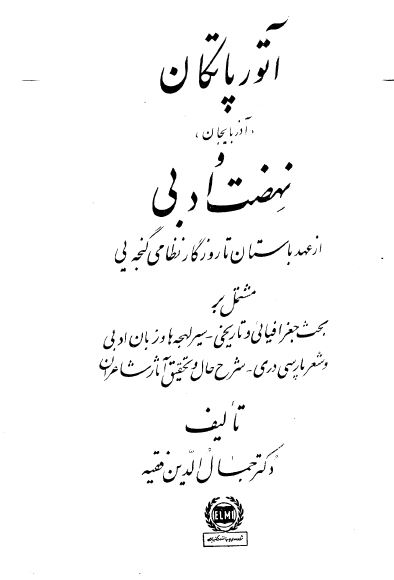 آتورپاتکان
«آذربایجان»
و
نهضت ادبی
از عهد باستان تا روزگار نظامی گنجه‌یی
مشتمل بر
بحث جغرافیائی و تاریخی - سیر لهجه‌ها و زبان ادبی
و شعر پارسی دری - شرح حال و تحقیق آثار شاعران
تألیف
دکتر جمال‌الدین فقیه
ELMI